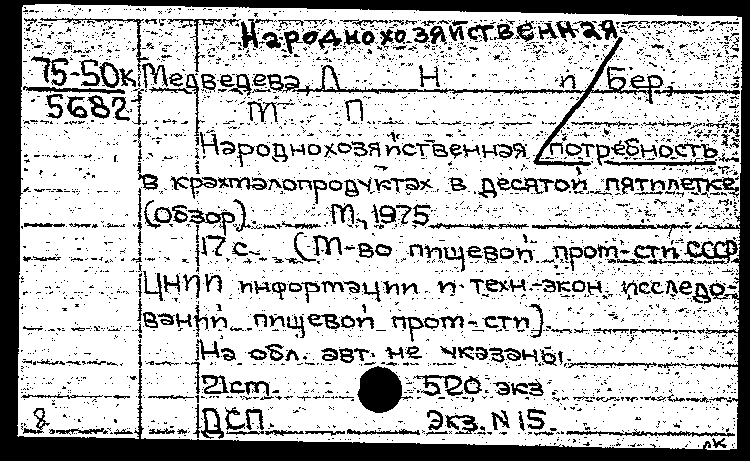 Народнохозяйственная
75-50к Медведева, Л Н и Бер,
5682 М П
Народнохозяйственная потребность
в крахмалопродуктах в десятой пятилетке
(Обзор). М., 1975
17 с. (М-во пищевой пром-сти СССР
ЦНИИ информации и техн.-экон. исследо-
ваний пищевой пром-сти).
На обл. авт. не указаны.
21 cm. 520 экз.
8 ДСП. Экз. N 15.
лк